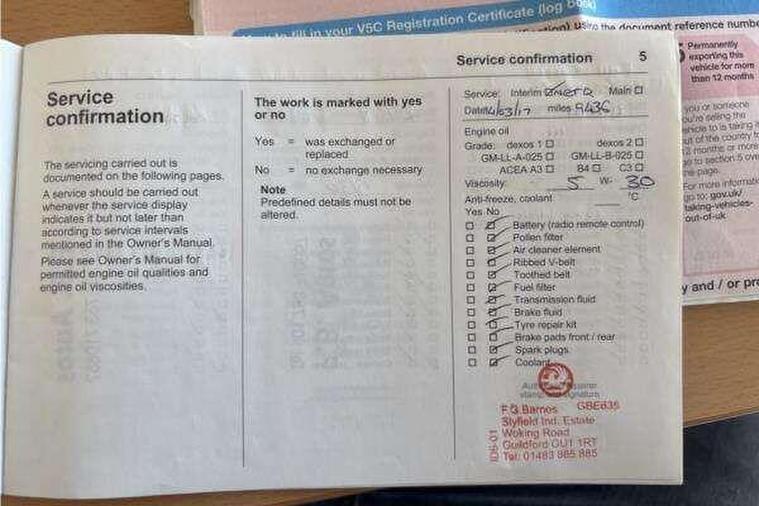 fill in your V5C Registration Certificate (log book)
using the document reference number
Service confirmation 5
Service confirmation
The servicing carried out is
documented on the following pages.
A service should be carried out
whenever the service display
indicates it but not later than
according to service intervals
mentioned in the Owner's Manual.
Please see Owner's Manual for
permitted engine oil qualities and
engine oil viscosities.
The work is marked with yes
or no
Yes = was exchanged or
replaced
No = no exchange necessary
Note
Predefined details must not be
altered.
Service: Interim Main
Date: 14/03/17 miles 9436
Engine oil
Grade: dexos 1 dexos 2
GM-LL-A-025 GM-LL-B-025
ACEA A3 B4 C3
Viscosity: 5 W- 30
Anti-freeze, coolant °C
Yes No
Battery (radio remote control)
Pollen filter
Air cleaner element
Ribbed V-belt
Toothed belt
Fuel filter
Transmission fluid
Brake fluid
Tyre repair kit
Brake pads front / rear
Spark plugs
Coolant
stamp signature
F G Barnes GBE635
Slyfield Ind. Estate
Woking Road
Guildford GU1 1RT
Tel: 01483 885 885
IDS-01
Permanently
exporting this
vehicle for more
than 12 months
you or someone
you're selling the
vehicle to is taking it
out of the country for
12 months or more
go to section 5 over
the page.
For more information
go to: gov.uk/
taking-vehicles-
out-of-uk
y and / or pro